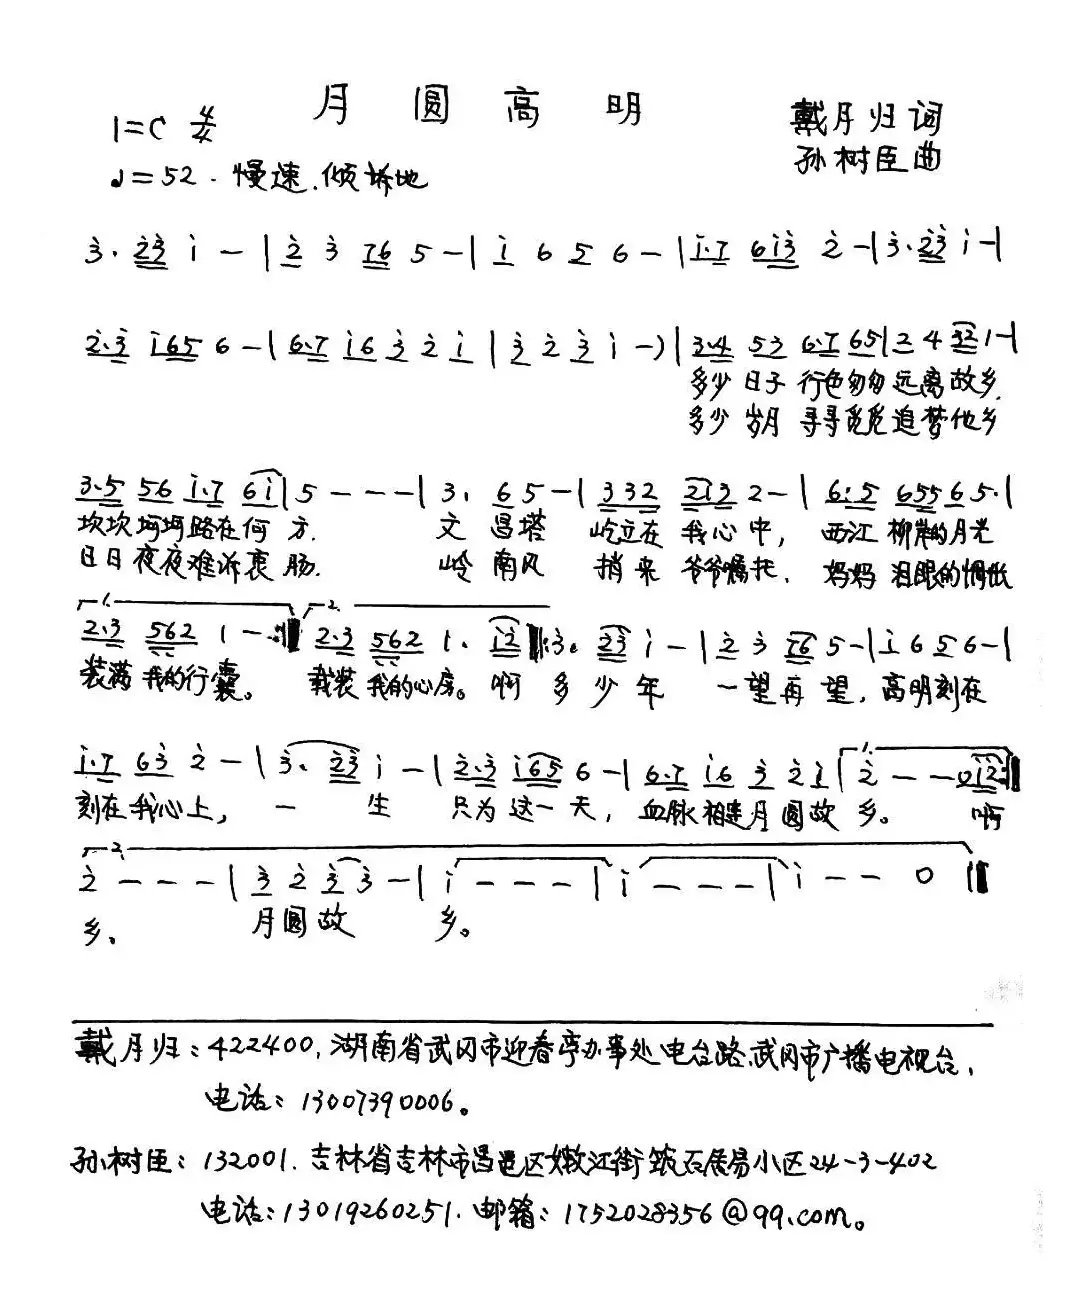 月圆高明
1=C 4/4
戴月归词
孙树臣曲
♩=52. 慢速.倾诉地
3̇. 2̇3̇ 1̇ - | 2̇ 3̇ 76 5 - | 1̇ 6 5 6 - | 1̇.7 61̇3̇ 2̇ - | 3̇.2̇3̇ 1̇ - |
2̇.3̇ 1̇65 6 - | 6.7 1̇6 3̇ 2̇ 1̇ | 3̇ 2̇ 3̇ 1̇ - ) | 3.4 53 6.7 65 | 2 4 32 1 - |
多少日子行色匆匆远离故乡.
多少岁月寻寻觅觅追梦他乡
3.5 56 1̇.7 61̇ | 5 - - - | 3. 6 5 - | 332 213 2 - | 6.5 6556 5. |
坎坎坷坷路在何方. 文昌塔屹立在我心中, 西江柳岸的月光
日日夜夜难诉衷肠. 岭南风捎来爷爷嘱托, 妈妈泪眼的惆怅
1. 2.
2.3 562 1 - :| 2.3 562 1. 1̇2̇ |: 3̇. 2̇3̇ 1̇ - | 2̇ 3̇ 76 5 - | 1̇ 6 5 6 - |
装满我的行囊。 载装我的心房。啊多少年一望再望,高明刻在
1̇.7 63̇ 2̇ - | 3̇. 2̇3̇ 1̇ - | 2̇.3̇ 1̇65 6 - | 6.7 1̇6 3̇ 2̇1̇ | 1. 2̇ - - 01̇2̇ :|
刻在我心上, 一生只为这一天, 血脉相连月圆故乡。 啊
2.
2̇ - - - | 3̇ 2̇ 3̇ 3̇ - | 1̇ - - - | 1̇ - - - | 1̇ - - 0 ‖
乡。 月圆故乡。
戴月归:422400.湖南省武冈市迎春亭办事处电台路.武冈市广播电视台,
电话:13007390006。
孙树臣:132001.吉林省吉林市昌邑区嫩江街筑石居易小区24-3-402
电话:13019260251.邮箱:1752028356@qq.com。